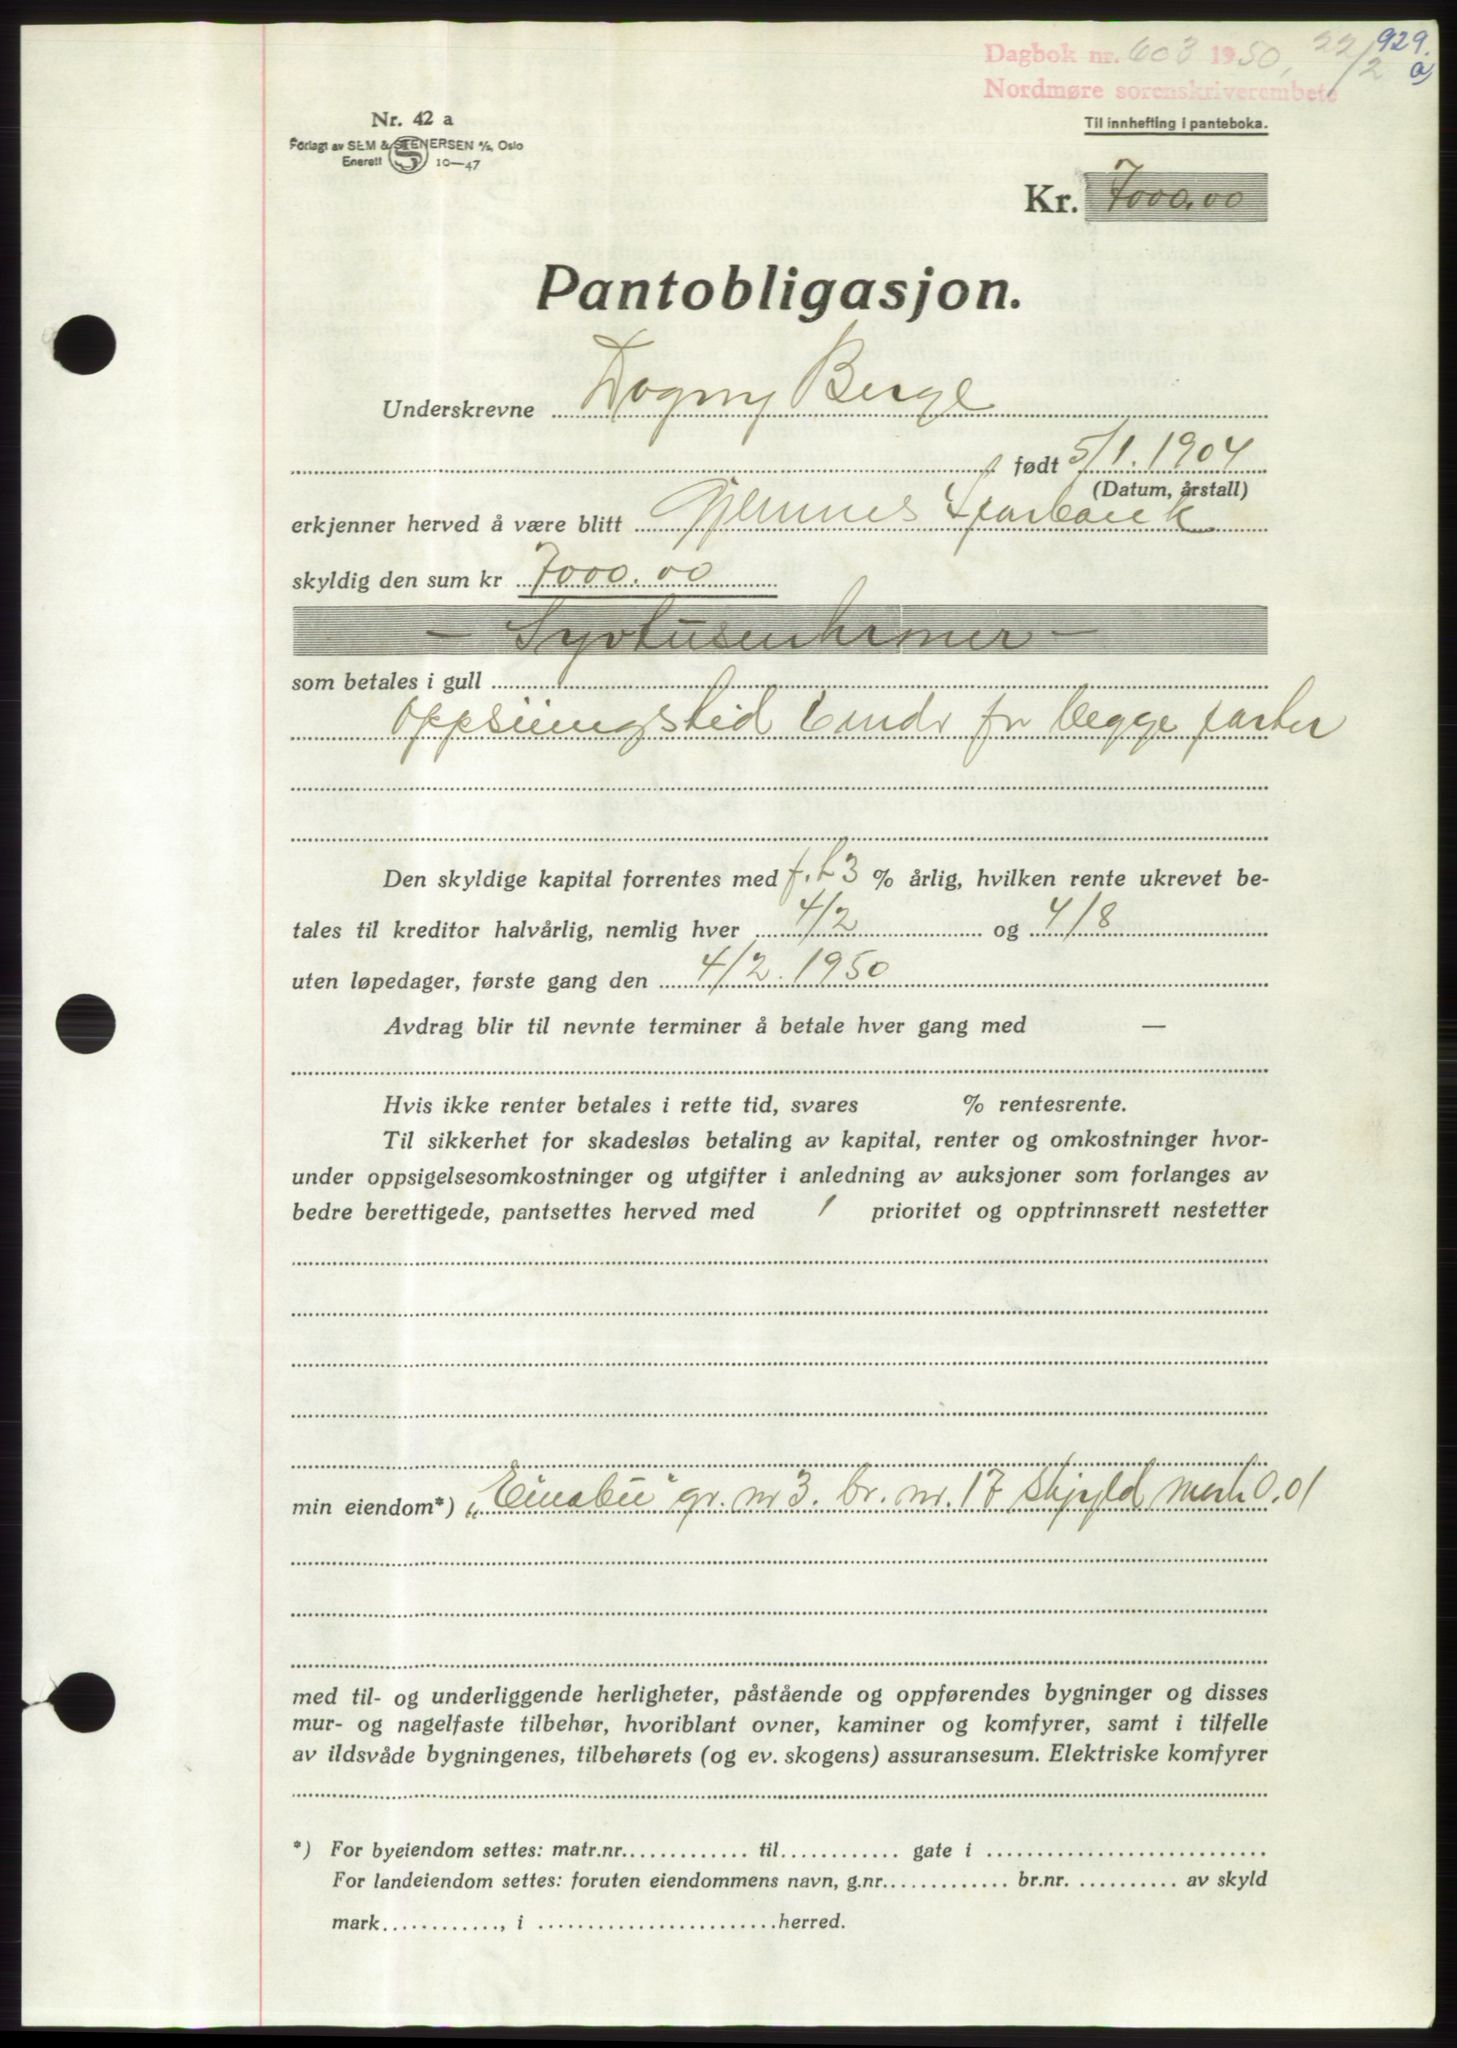 929.
a)
Dagbok nr. 603 1950, 22/2
Nordmøre sorenskriverembete
Til innhefting i panteboka.
Nr. 42 a
Forlagt av SEM & STENERSEN A/S, Oslo
Enerett S 10—47
Kr. 7000.00
Pantobligasjon.
Underskrevne Dagny Berge
født 5/1. 1904
(Datum, årstall)
erkjenner herved å være blitt Gjemnes Sparbank
skyldig den sum kr 7000.00
— Syvtusenkroner —
som betales i gull
Oppsiingstid 6 mdr for begge parter
Den skyldige kapital forrentes med f.t. 3 % årlig, hvilken rente ukrevet be-
tales til kreditor halvårlig, nemlig hver 4/2 og 4/8
uten løpedager, første gang den 4/2. 1950
Avdrag blir til nevnte terminer å betale hver gang med —
Hvis ikke renter betales i rette tid, svares % rentesrente.
Til sikkerhet for skadesløs betaling av kapital, renter og omkostninger hvor-
under oppsigelsesomkostninger og utgifter i anledning av auksjoner som forlanges av
bedre berettigede, pantsettes herved med 1 prioritet og opptrinnsrett nestetter
min eiendom*) „Einabu" gr. nr 3. br. nr. 17 skjyld mark 0.01
med til- og underliggende herligheter, påstående og oppførendes bygninger og disses
mur- og nagelfaste tilbehør, hvoriblant ovner, kaminer og komfyrer, samt i tilfelle
av ildsvåde bygningenes, tilbehørets (og ev. skogens) assuransesum. Elektriske komfyrer
*) For byeiendom settes: matr.nr............. til............ gate i ............................
For landeiendom settes: foruten eiendommens navn, g.nr............. br.nr. .......... av skyld
mark............, i ........................herred.